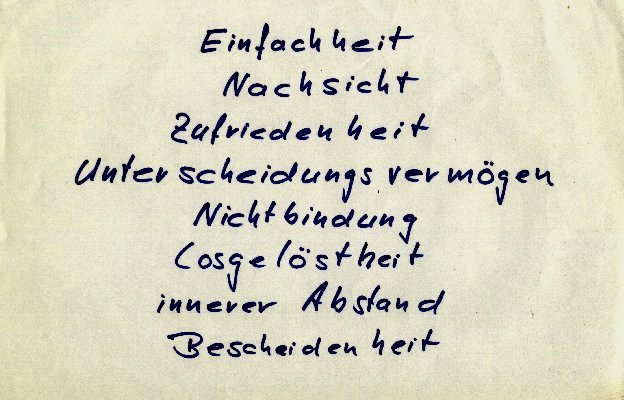 Einfachheit
Nachsicht
Zufriedenheit
Unterscheidungsvermögen
Nichtbindung
Losgelöstheit
innerer Abstand
Bescheidenheit